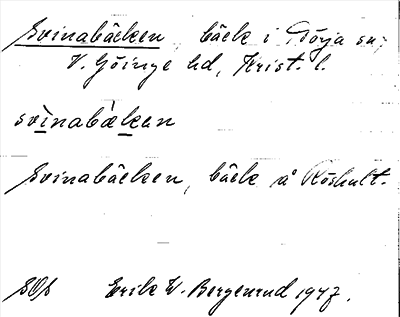 Svinabäcken, bäck i Röja sn,
V. Göinge hd, Krist. l.
svìnabæ̀kan
Svinabäcken, bäck å Röshult.
SOf Erik W. Bergenrud 1947.